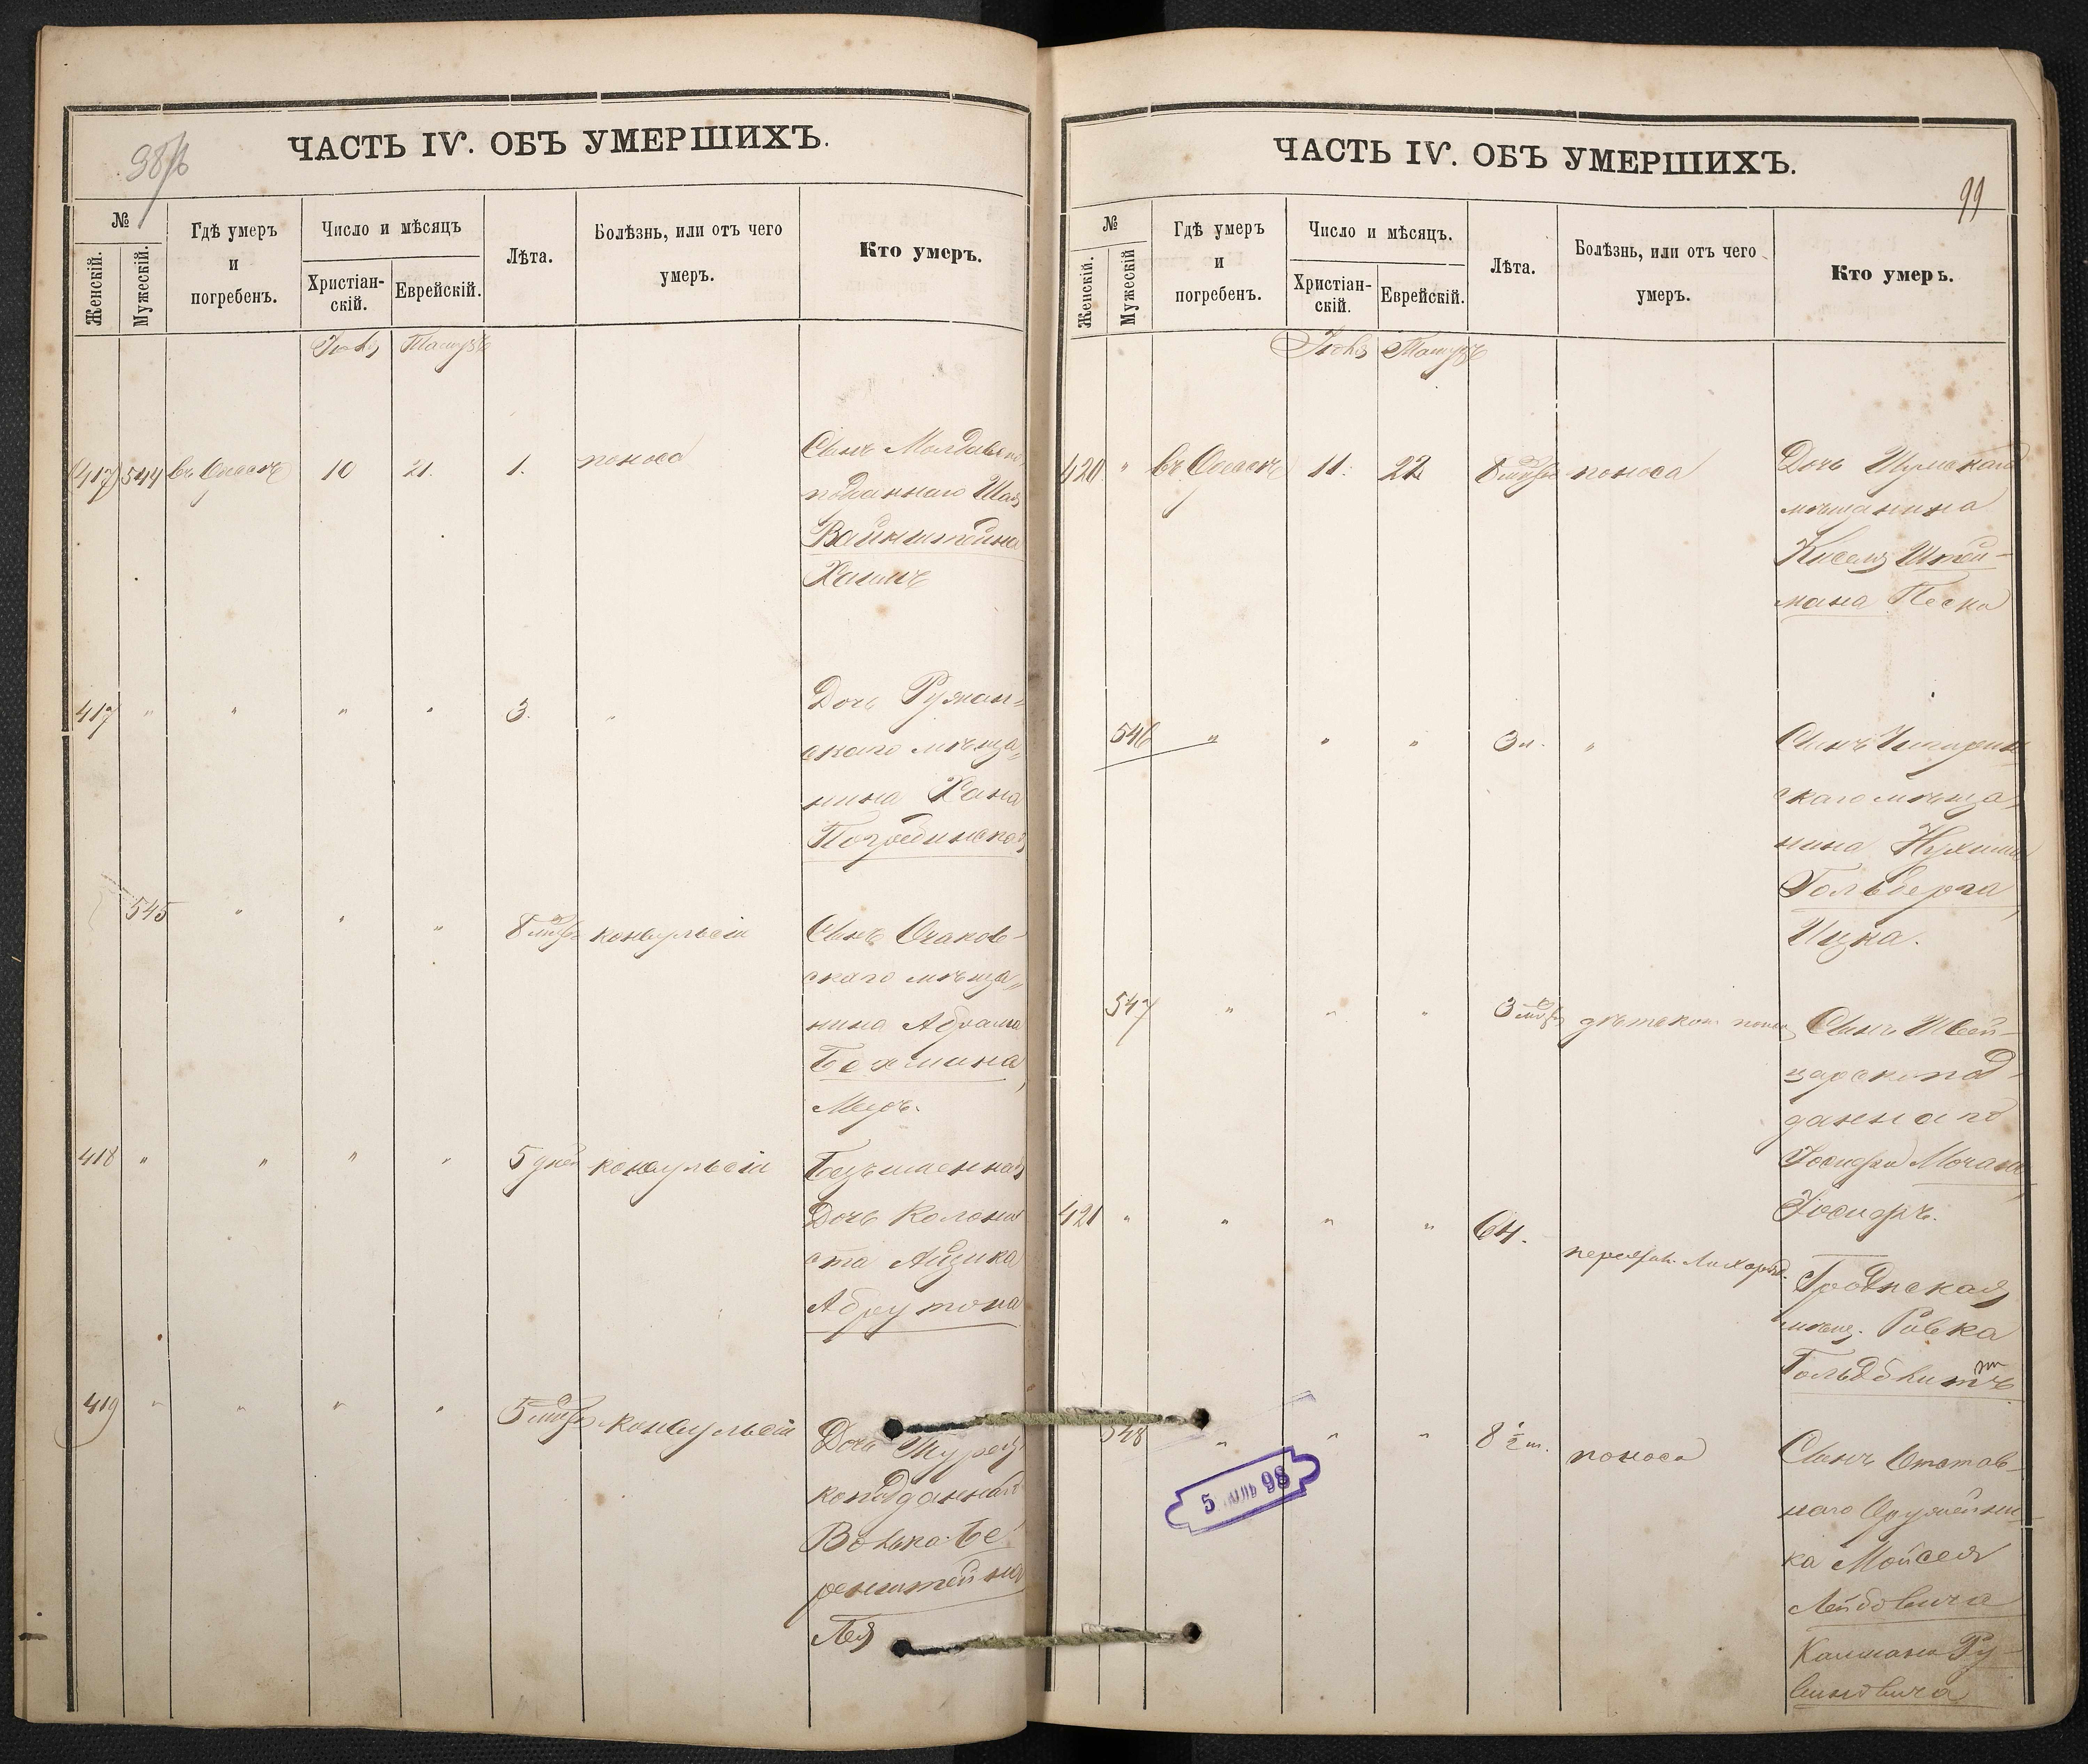 98/б
ЧАСТЬ IV. ОБЪ УМЕРШИХЪ.
№
Женскій.
Мужескій.
Гдѣ умеръ
и
погребенъ.
Число и мѣсяцъ
Христіан-
скій.
Еврейскій.
Лѣта.
Болѣзнь, или отъ чего
умеръ.
Кто умеръ.
Іюля Тамузъ
(417) 544 въ Одессѣ 10 21. 1. поноса
Сынъ Молдавско
подданнаго Шая
Вайнштейна
Хаимъ
417 " " " " 3. "
Дочь
скаго мѣща„
нина Хана
545 " " " 8 мѣс. конвульсіи
Сынъ Очаков-
скаго мѣща„
нина Абрама
Мееръ.
418 " " " " 5 дней конвульсіи
Безъименная
Дочь Колони
ста Айзика
Абрутона
419 " " " " 5 мѣс. конвульсіи
Дочь Турец
коподданнаго
Волько Бе
ренштейна
Лея
ЧАСТЬ IV. ОБЪ УМЕРШИХЪ.
99
№
Женскій.
Мужескій
Гдѣ умеръ
и
погребенъ.
Число и мѣсяцъ.
Христіан-
скій.
Еврейскій.
Лѣта.
Болѣзнь, или отъ чего
умеръ.
Кто умеръ.
Іюля Тамузъ
420 " въ Одессѣ 11. 22 8 мѣс. поноса
Дочь Шумскаго
мѣщанина
Киселя Штей-
мана Песка
546 " " " 3 "
Сынъ
скаго мѣща„
нина Нухима
Гольберга,
Ицка.
547 " " " 3 мѣс. дѣтском. понос
Сынъ Швей-
царскопод-
даннаго
Іосифа
Іосифъ.
421 " " " " 64. Лихорад.
Гроднская
мѣщ. Ривка
548 " " " 8 ½ м. поноса
Сынъ Отстав-
наго Оружейни-
ка Мойсея
Лейбовича
Калмана Ру-
биновича
5 98